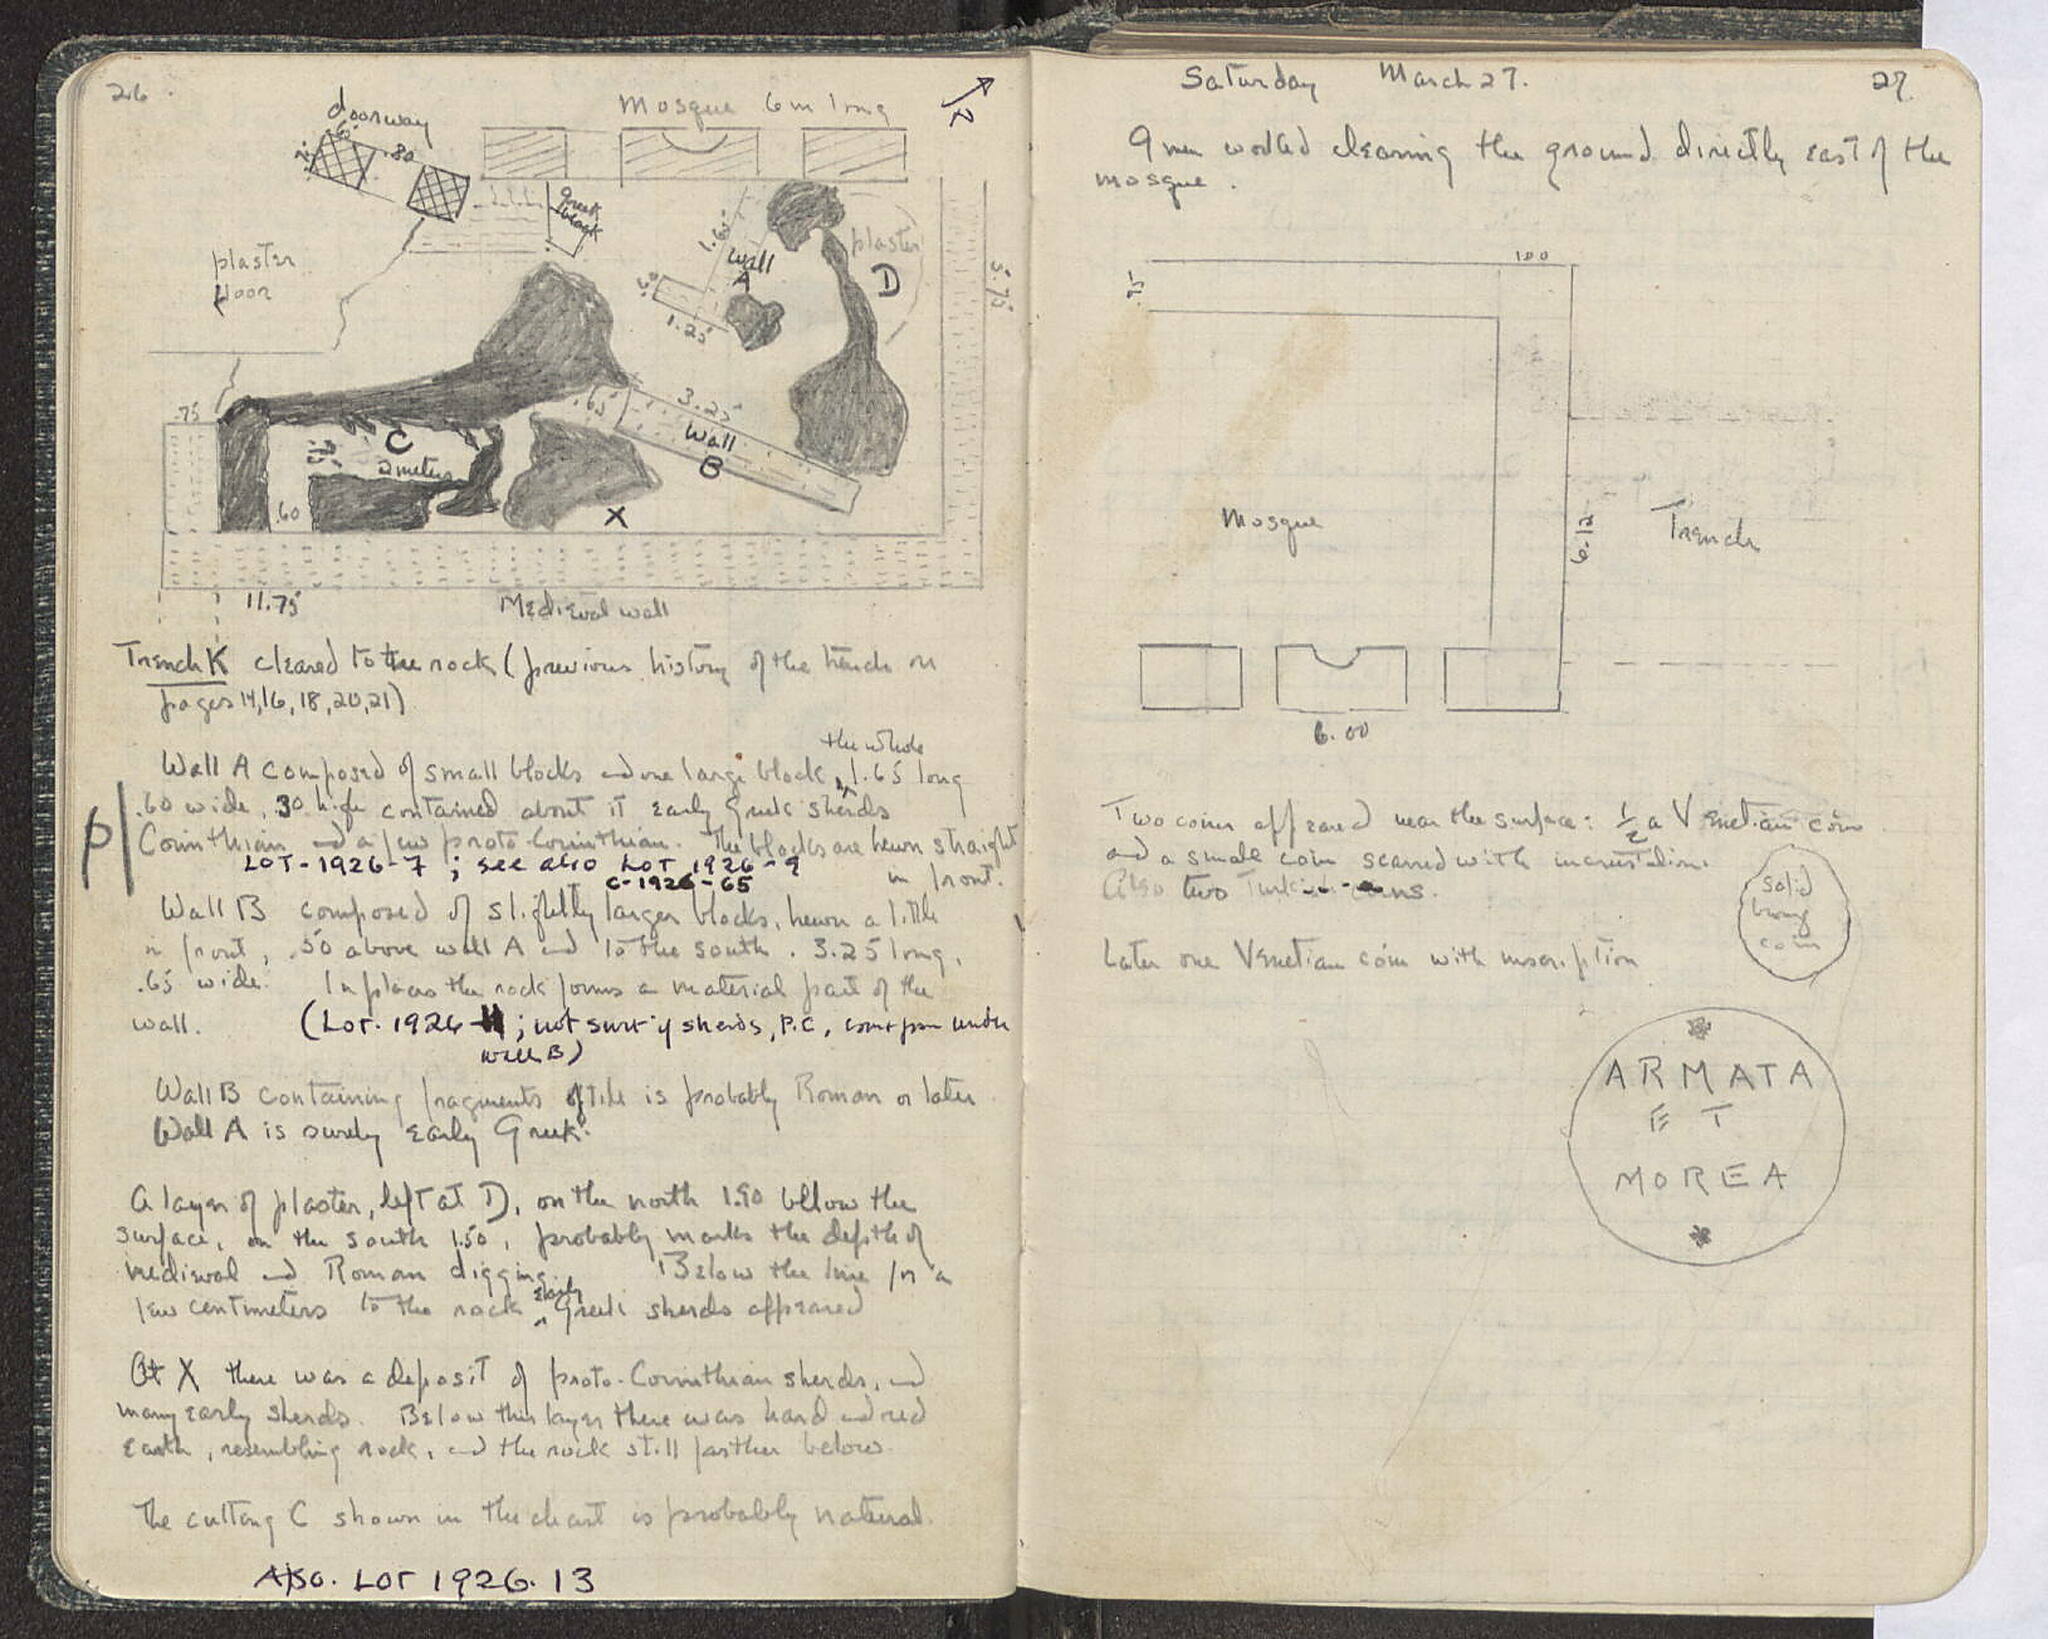 26.
doorway
.80
Mosque 6m long
N
Greek
block
plaster
floor
1.65
wall
A
.60
1.25
plaster
D
5.75
.75
.65
3.25
Wall
B
C
2 meters
.60
X
11.75
Medieval wall
Trench K cleared to the rock (previous history of the trench on
pages 14, 16, 18, 20, 21)
the whole
Wall A composed of small blocks and one large block, 1.65 long
.60 wide, .30 high contained about it early Greek sherds
Corinthian and a few proto-Corinthian. The blocks are hewn straight
in front.
LOT-1926-7; see also LOT 1926-9
C-1926-65
Wall B composed of slightly larger blocks, hewn a little
in front, .50 above wall A and to the south. 3.25 long,
.65 wide. In places the rock forms a material part of the
wall.
(Lot. 1926 ; not sherds, P.C, under
wall B)
Wall B containing fragments of tile is probably Roman or later
Wall A is surely early Greek.
A layer of plaster, left at D, on the north 1.90 below the
surface, on the south 1.50, probably marks the depth of
medieval and Roman digging. Below the line for a
few centimeters to the rock early Greek sherds appeared
At X there was a deposit of proto-Corinthian sherds, and
many early sherds. Below this layer there was hard and red
earth, resembling rock, and the rock still farther below.
The cutting C shown in the chart is probably natural.
Also. LOT 1926-13
Saturday March 27.
27.
9 men worked clearing the ground directly east of the
mosque.
1.00
.75
Mosque
6.12
Trench
6.00
Two coins appeared near the surface: 1/2 a Venetian coin
and a small coin scarred with incrustation.
Also two Turkish coins.
solid
coin
Later one Venetian coin with inscription
ARMATA
ET
MOREA